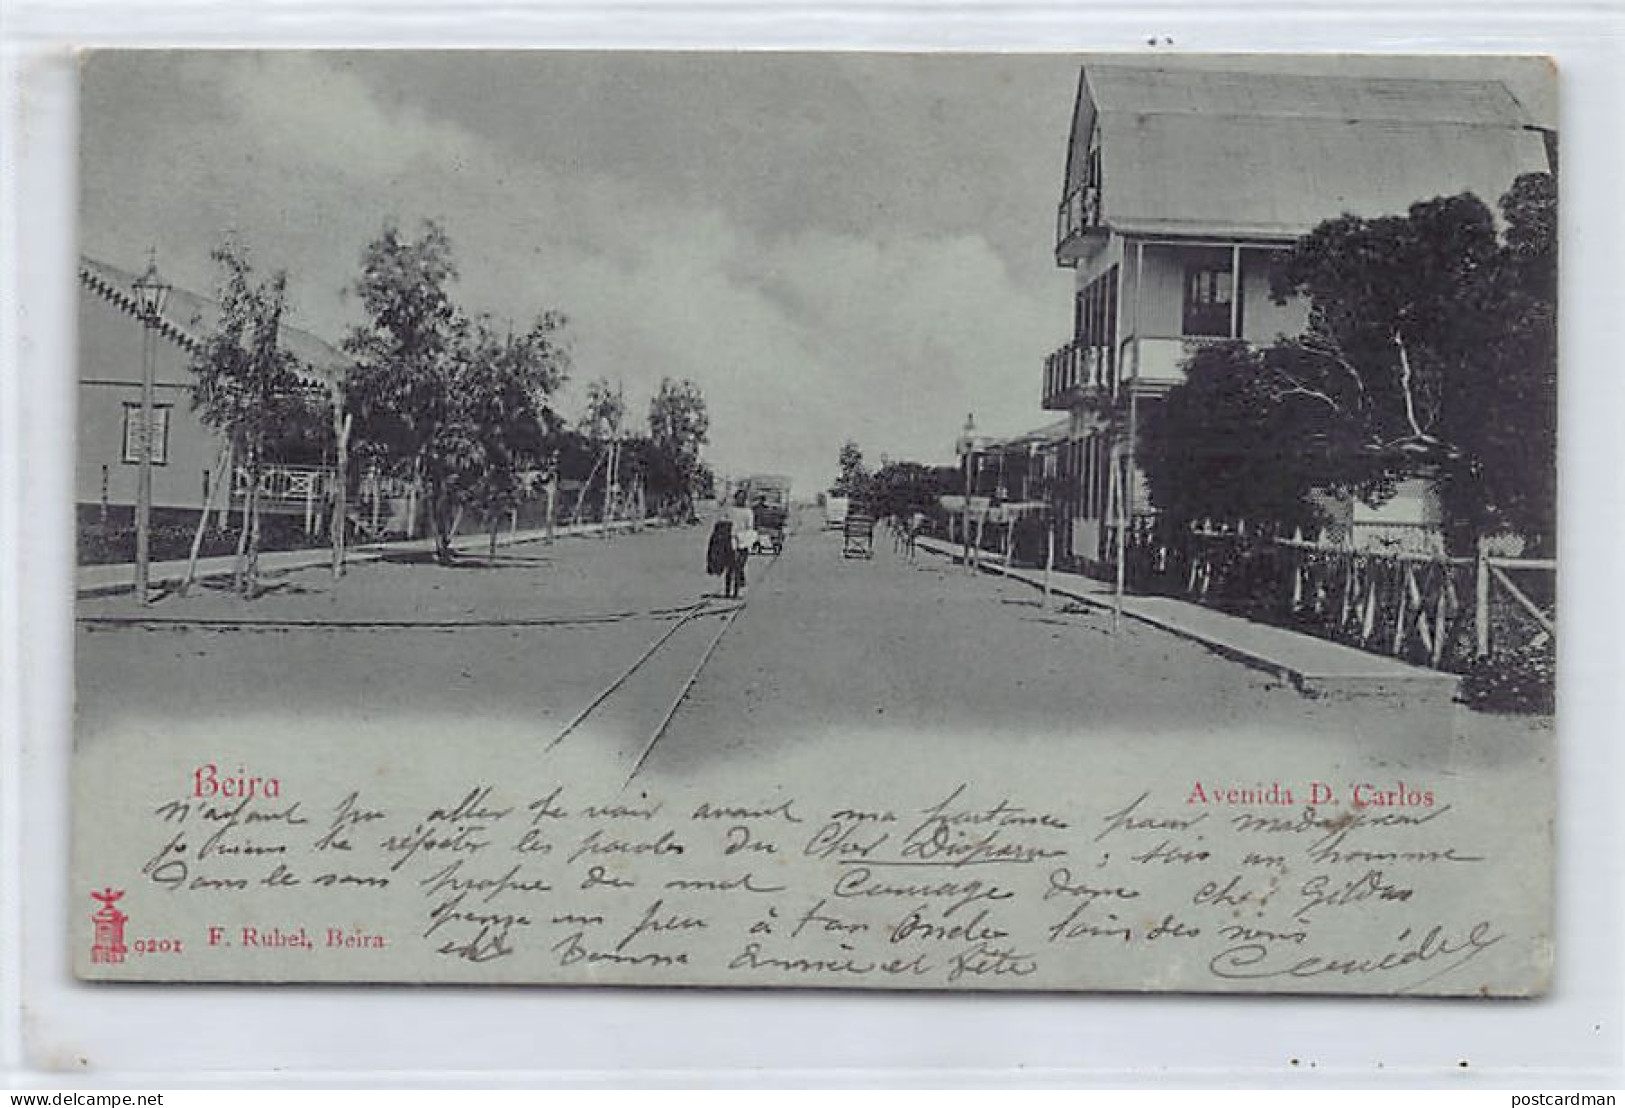 Beira
Avenida D. Carlos
n'ayant pu aller te voir avant ma partance pour Madagascar
je viens te répéter les paroles du Cher Disparu, sois un homme
dans le sens propre du mot Courage donc cher Gildas
pense un peu à ton Oncle loin des siens
et Bonne Année et Fête
9201 F. Rubel, Beira
www.delcampe.net
postcardman